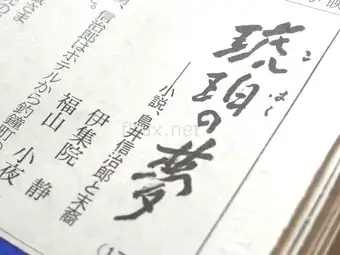 琥珀の夢
こはく
――小説、鳥井信治郎と末裔
伊集院 静
福山 小夜
(17
信治郎はホテルから釣鐘町の